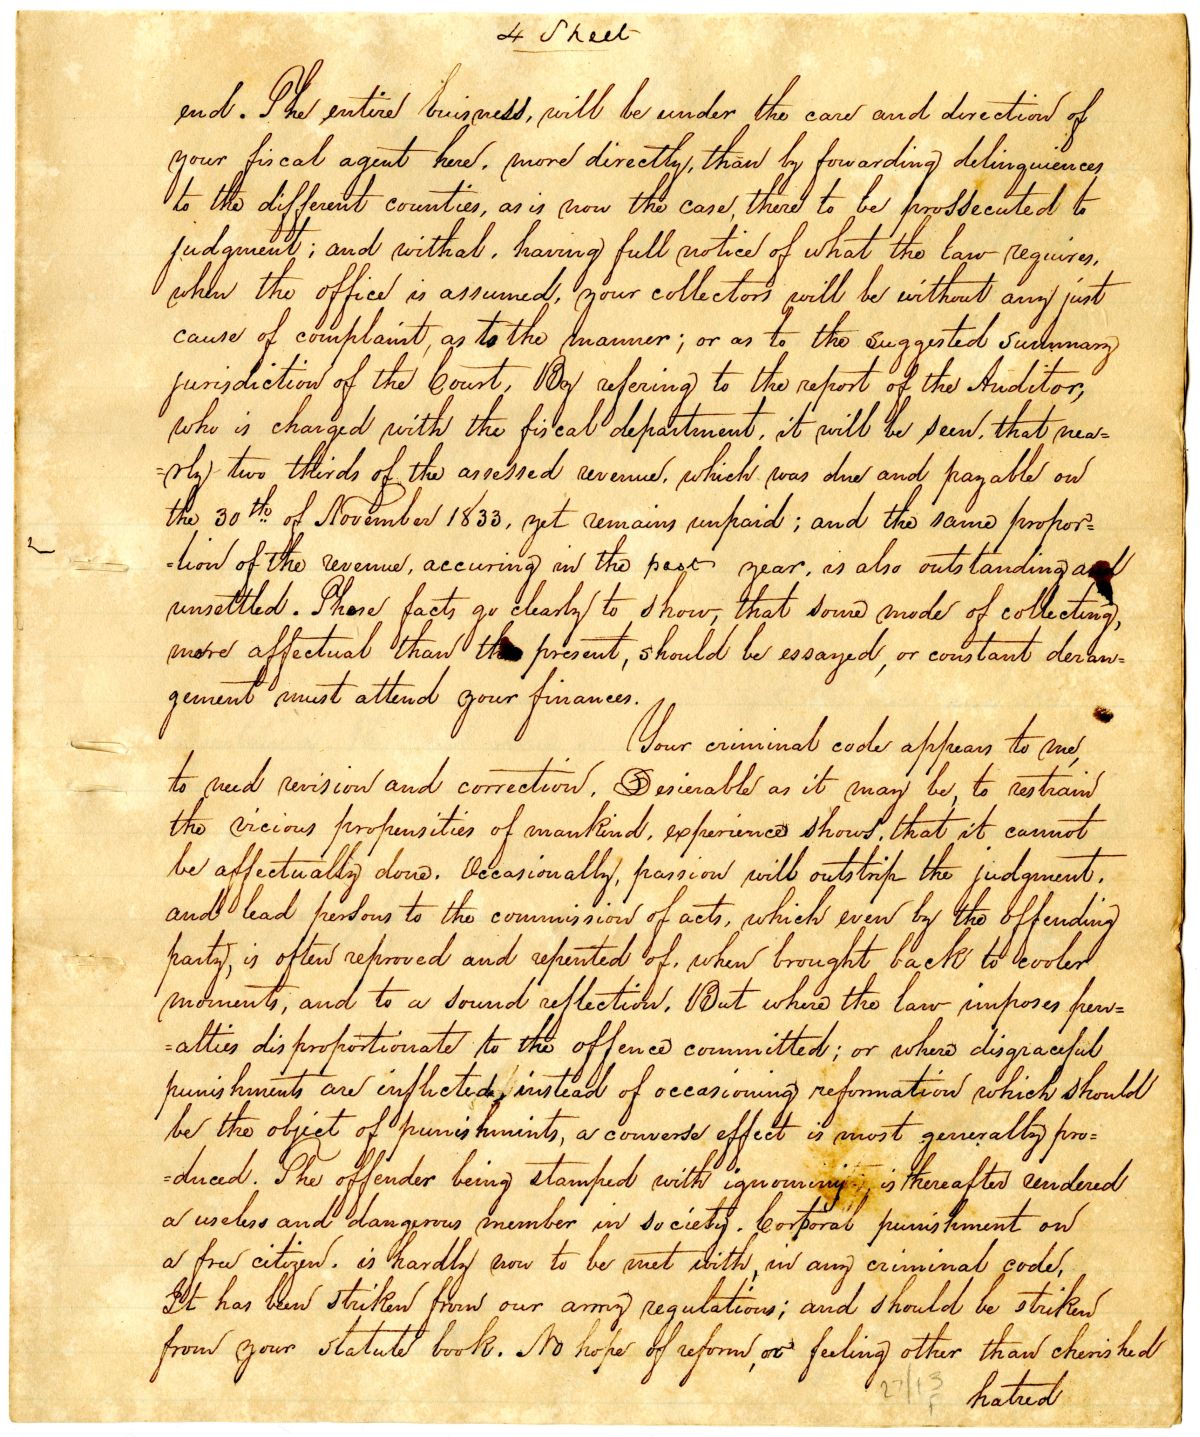 4 Sheet
end. The entire buisness, will be under the care and direction of
your fiscal agent here, more directly, than by fowarding delinquiences
to the different counties, as is now the case, there to be prossecuted to
judgment; and withal, having full notice of what the law requires,
when the office is assumed, your collectors will be without any just
cause of complaint, as to the manner; or as to the suggested summary
jurisdiction of the Court, By refering to the report of the Auditor,
who is charged with the fiscal department, it will be seen, that nea=
=rly two thirds of the assessed revenue, which was due and payable on
the 30th of November 1833, yet remains unpaid; and the same propor=
=tion of the revenue, accuring in the past year, is also outstanding and
unsettled. These facts go clearly to show, that some mode of collecting,
more affectual than the present, should be essayed, or constant deran=
gement must attend your finances.
Your criminal code appears to me,
to need revision and correction. Desierable as it may be, to restrain
the vicious propensities of mankind, experience shows, that it cannot
be affectually done. Occasionally, passion will outstrip the judgment,
and lead persons to the commission of acts, which even by the offending
party, is often reproved and repented of, when brought back to cooler
moments, and to a sound reflection. But where the law imposes pen=
=alties disproportionate to the offence committed; or where disgraceful
punishments are inflicted, instead of occasioning reformation which should
be the object of punishmints, a converse effect is most generally pro=
=duced. The offender being stamped with ignominy, is thereafter rendered
a useless and dangerous member in society. Corporal punishment on
a free citizen, is hardly now to be met with, in any criminal code,
It has been striken from our army regulations; and should be striken
from your statute book. No hope of reform, or feeling other than cherished
hatred